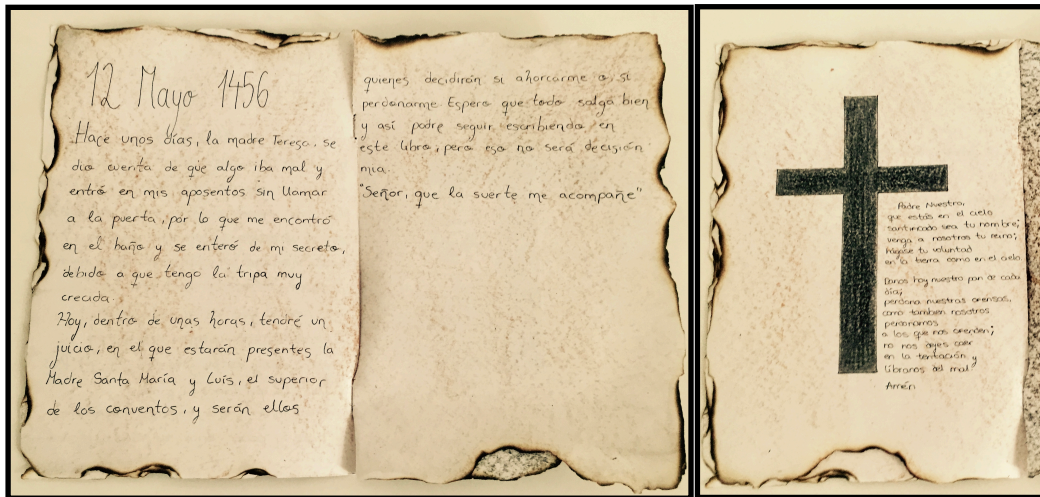 12 Mayo 1456
Hace unos días, la madre Teresa, se
dio cuenta de que algo iba mal y
entró en mis aposentos sin llamar
a la puerta, por lo que me encontró
en el baño y se enteró de mi secreto,
debido a que tengo la tripa muy
crecida.
Hoy, dentro de unas horas, tendré un
juicio, en el que estarán presentes la
Madre Santa María y Luís, el superior
de los conventos, y serán ellos
quienes decidirán si ahorcarme o si
perdonarme. Espero que todo salga bien
y así podre seguir escribiendo en
este libro, pero eso no será decisión
mía.
"Señor, que la suerte me acompañe"
Padre Nuestro,
que estás en el cielo
santificado sea tu nombre;
venga a nosotros tu reino;
hágase tu voluntad
en la tierra como en el cielo.
Danos hoy nuestro pan de cada
día;
perdona nuestras ofensas,
como también nosotros
perdonamos
a los que nos ofenden;
no nos dejes caer
en la tentación y
líbranos del mal
Amén